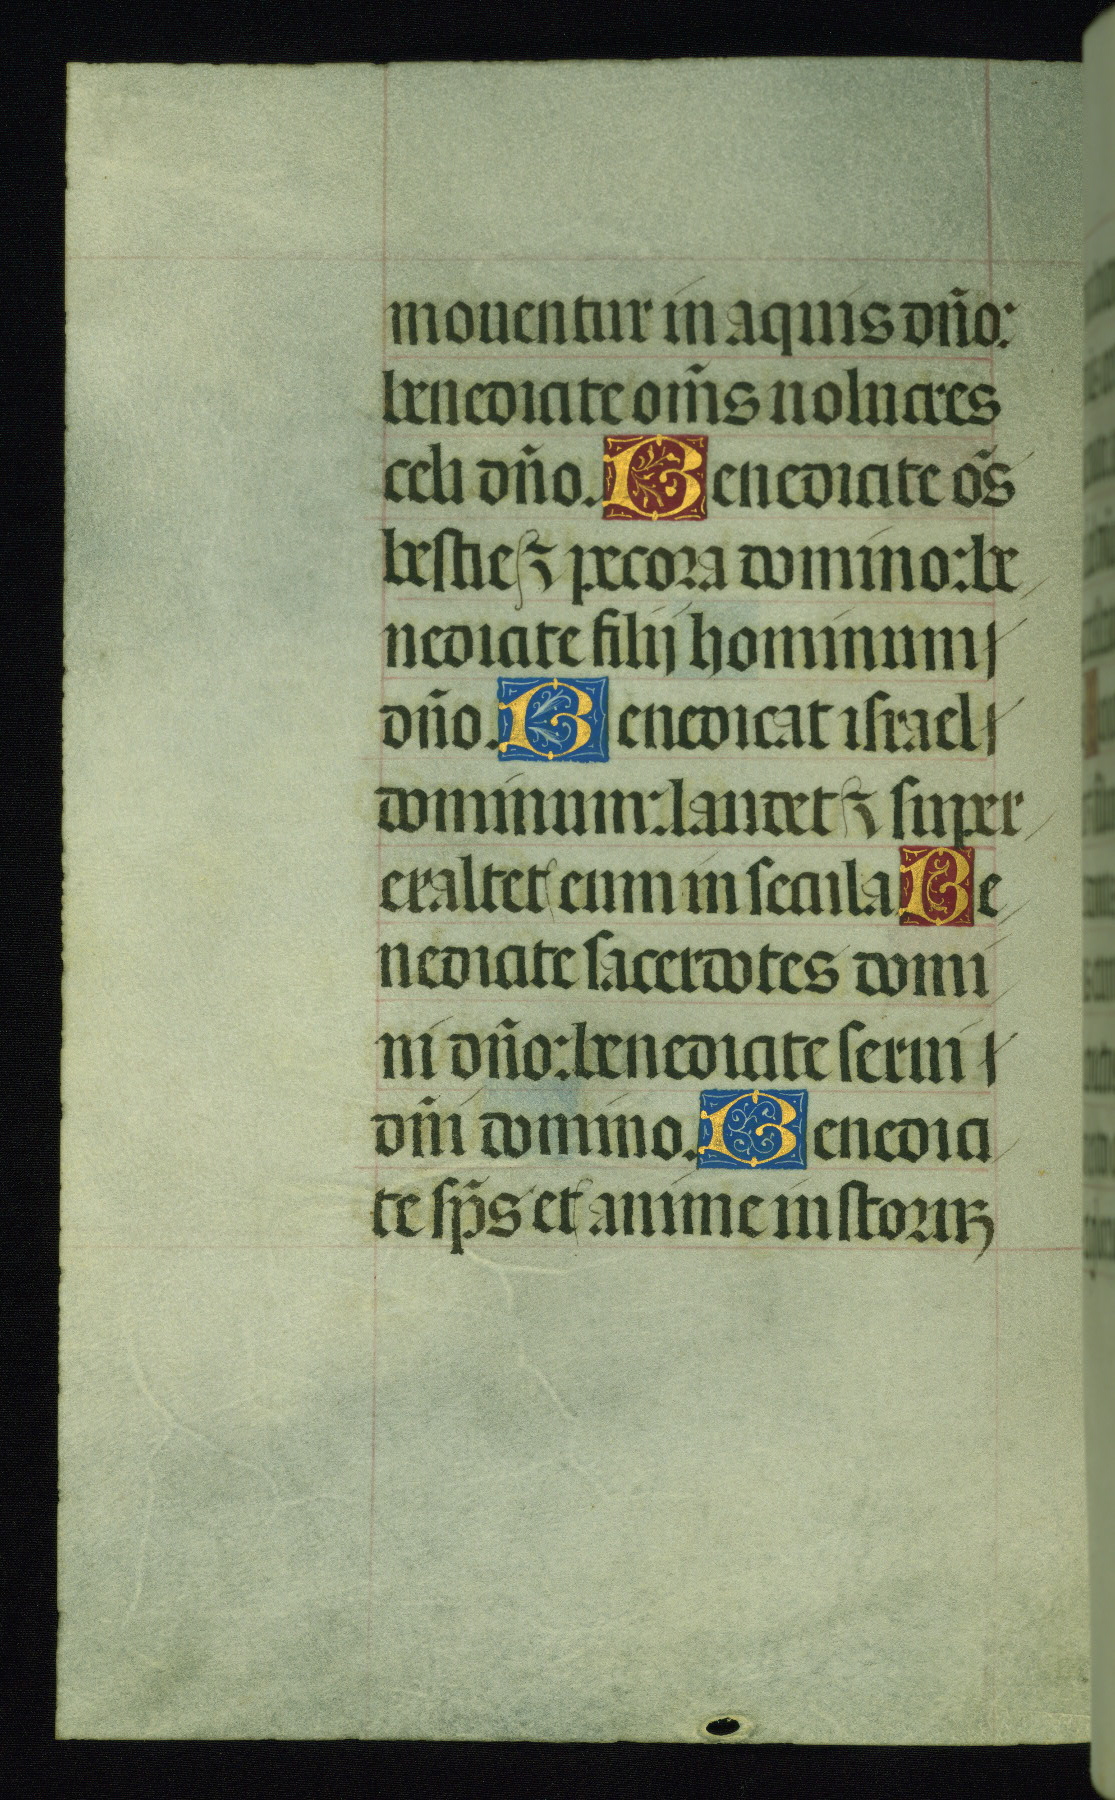 mouentur in aquis dño:
benedicite om̃s uolucres
celi dño. Benedicite õs
bestie ⁊ pecora domino: be
nedicite filij hominum
dño. Benedicat israel
dominum: laudet ⁊ super
exaltet eum in secula. Be
nedicite sacerdotes domi
ni dño: benedicite serui
dñi domino. Benedici
te sp̃s et anime iustoruꝝ